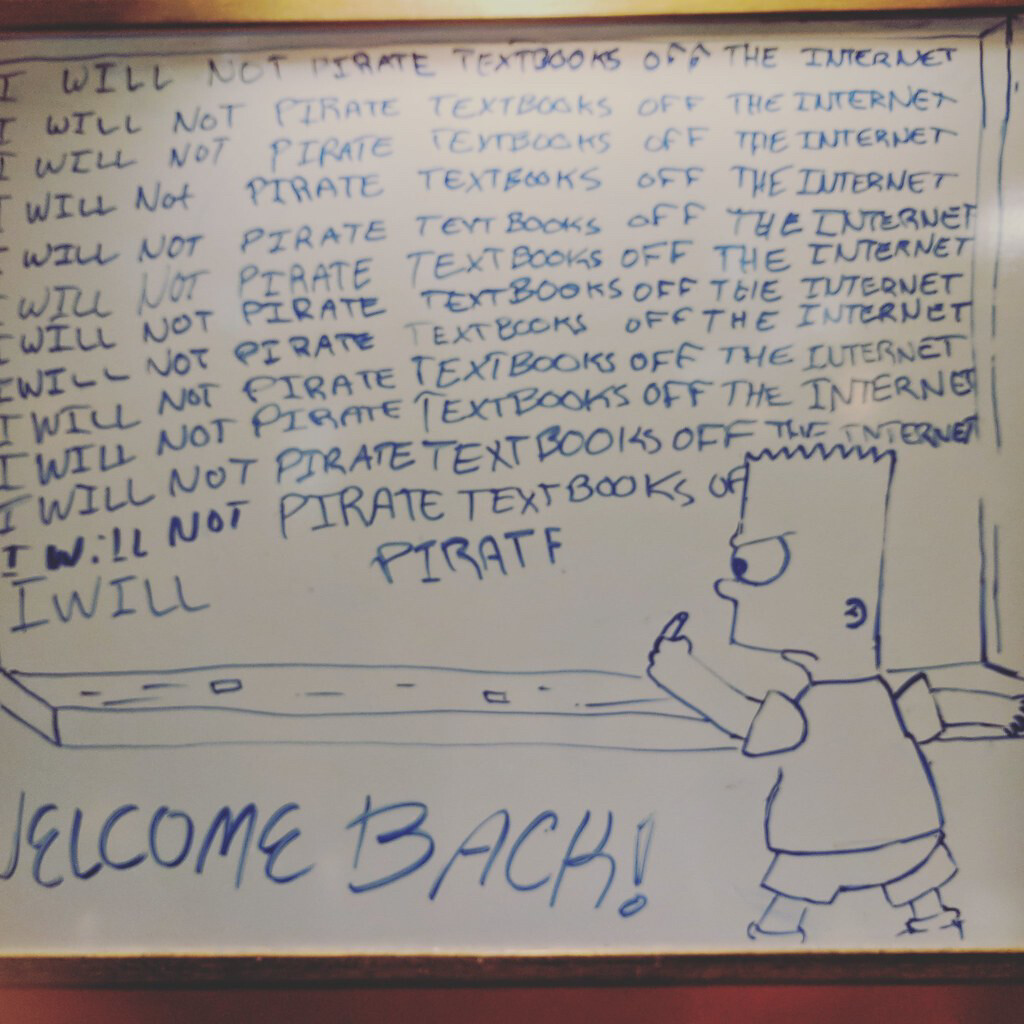 I WILL NOT PIRATE TEXTBOOKS OFF THE INTERNET
I WILL NOT PIRATE TEXTBOOKS OFF THE INTERNET
I WILL NOT PIRATE TEXTBOOKS OFF THE INTERNET
I WILL Not PIRATE TEXTBOOKS OFF THE INTERNET
I WILL NOT PIRATE TEXTBOOKS OFF THE INTERNET
I WILL NOT PIRATE TEXTBOOKS OFF THE INTERNET
I WILL NOT PIRATE TEXTBOOKS OFF THE INTERNET
I WILL NOT PIRATE TEXTBOOKS OFF THE INTERNET
I WILL NOT PIRATE TEXTBOOKS OFF THE INTERNET
I WILL NOT PIRATE TEXTBOOKS OFF THE INTERNET
I WILL NOT PIRATE TEXTBOOKS OFF THE INTERNET
I WiLL NOT PIRATE TEXTBOOKS OF
I WILL PIRATE
WELCOME BACK!